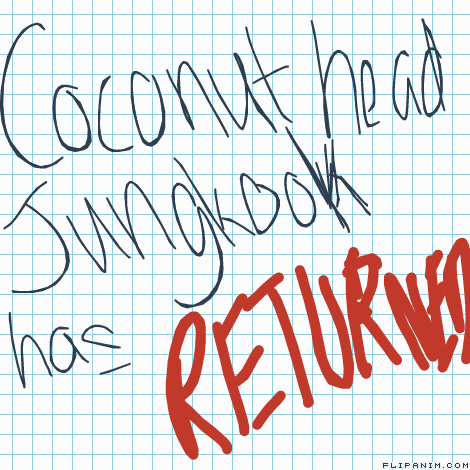 Coconut head
Jungkook
has RETURNED
FLIPANIM.COM